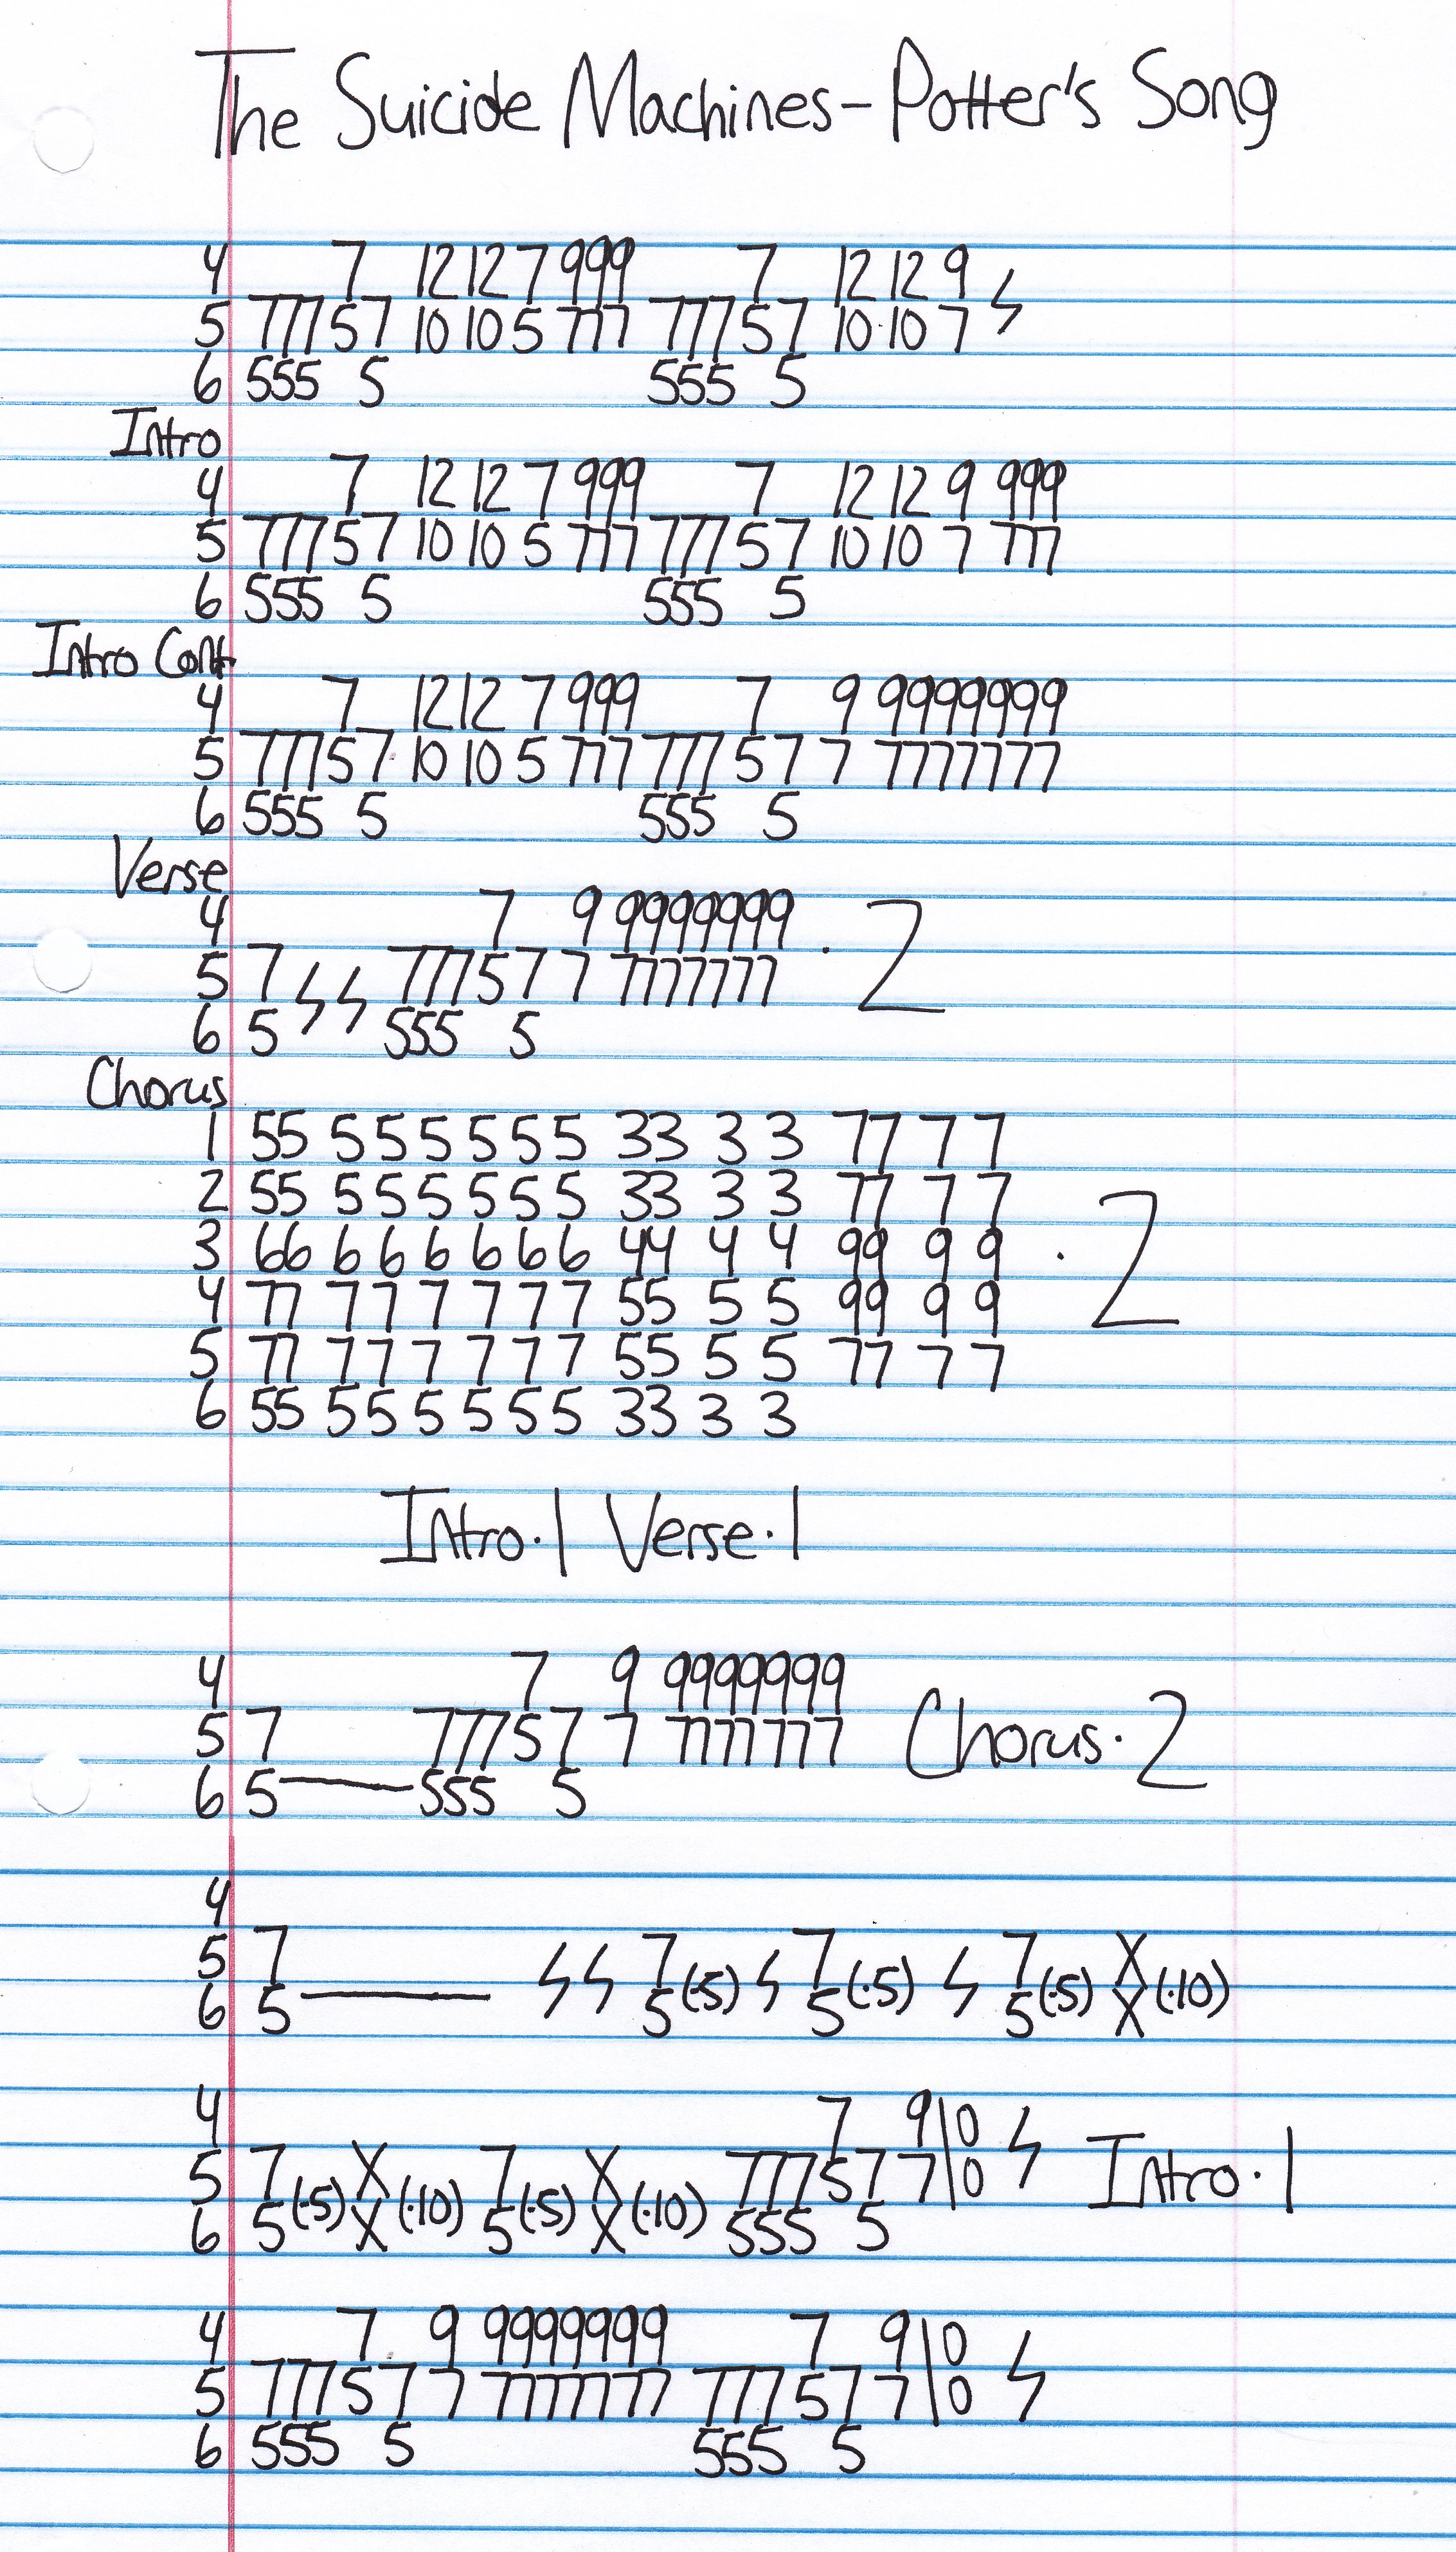 The Suicide Machines - Potter's Song
4 7 12 12 7 999 7 12 12 9
5 777 5 7 10 10 5 777 777 5 7 10 10 7
6 555 5 555 5
Intro
4 7 12 12 7 999 7 12 12 9 999
5 777 5 7 10 10 5 777 777 5 7 10 10 7 777
6 555 5 555 5
Intro Cont.
4 7 12 12 7 999 7 9 9999999
5 777 5 7 10 10 5 777 777 5 7 7 7777777
6 555 5 555 5
Verse
4 7 9 9999999 · 2
5 7 777 5 7 7 7777777
6 5 555 5
Chorus
1 55 5 5 5 5 5 5 33 3 3 77 7 7
2 55 5 5 5 5 5 5 33 3 3 77 7 7
3 66 6 6 6 6 6 6 44 4 4 99 9 9 · 2
4 77 7 7 7 7 7 7 55 5 5 99 9 9
5 77 7 7 7 7 7 7 55 5 5 77 7 7
6 55 5 5 5 5 5 5 33 3 3
Intro·1 Verse·1
4 7 9 9999999
5 7 777 5 7 7 7777777 Chorus·2
6 5 — 555 5
4
5 7 7 7 7 X
6 5 — 5 (·5) 5 (·5) 5 (·5) X (·10)
4 7 9\0
5 7 X 7 X 777 5 7 7\0 Intro·1
6 5 (·5) X (·10) 5 (·5) X (·10) 555 5
4 7 9 9999999 7 9\0
5 777 5 7 7 7777777 777 5 7 7\0
6 555 5 555 5